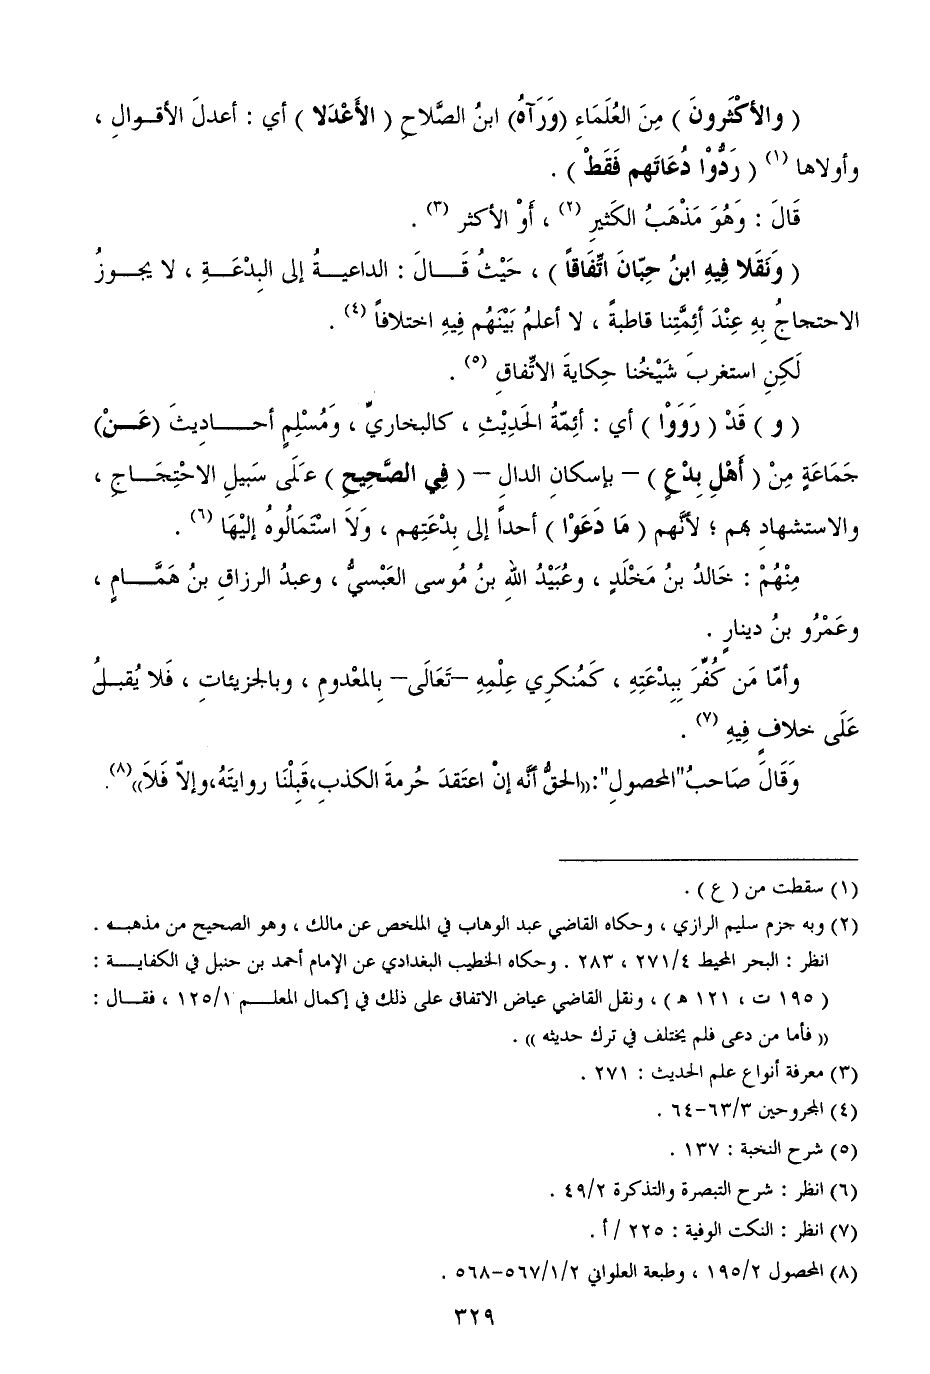 ( والأكْثَرونَ ) مِنَ العُلَمَاءِ (وَرَآهُ) ابنُ الصَّلاحِ ( الأَعْدَلا ) أي : أعدلَ الأقوالِ ،
وأولاها (١) ( رَدُّوْا دُعَاتَهم فَقَطْ ) .
قَالَ : وَهُوَ مَذْهَبُ الكَثيرِ (٢) ، أَوْ الأكثر (٣) .
( وَنَقَلا فِيهِ ابنُ حِبَّانَ اتِّفَاقاً ) ، حَيْثُ قَالَ : الداعيةُ إلى البِدْعَةِ ، لا يجوزُ
الاحتجاجُ بِهِ عِنْدَ أئِمَّتِنا قاطبةً ، لا أعلمُ بَيْنَهُم فِيهِ اختلافاً (٤) .
لَكِنِ استغربَ شَيْخُنا حِكايةَ الاتِّفاقِ (٥) .
( و ) قَدْ ( رَوَوْا ) أي : أئِمّةُ الحَدِيْثِ ، كالبخاريِّ ، وَمُسْلِمٍ أحاديثَ (عَنْ)
جَمَاعَةٍ مِنْ ( أَهْلِ بِدْعٍ ) – بإسكانِ الدال – ( فِي الصَّحِيحِ ) عَلَى سَبيلِ الاحْتِجَاجِ ،
والاستشهادِ بهم ؛ لأنَّهم ( مَا دَعَوْا ) أحداً إلى بِدْعَتِهم ، وَلَا اسْتَمَالُوهُ إليْهَا (٦) .
مِنْهُمْ : خَالدُ بنُ مَخْلَدٍ ، وعُبَيْدُ اللهِ بنُ مُوسى العَبْسيُّ ، وعبدُ الرزاقِ بنُ هَمَّامٍ ،
وعَمْرُو بنُ دينارٍ .
وأمّا مَن كُفِّرَ بِبِدْعَتِهِ ، كَمُنكري عِلْمِهِ –تَعَالَى– بِالمعْدومِ ، وبالجزيئاتِ ، فَلا يُقبلُ
عَلَى خلافٍ فِيهِ (٧) .
وَقَالَ صَاحبُ"المحصولِ":((الحقُّ أنَّه إنْ اعتَقدَ حُرمةَ الكذبِ،قَبِلْنَا روايتَهُ،وإلاّ فَلاَ))(٨).
(١) سقطت من ( ع ) .
(٢) وبه جزم سليم الرازي ، وحكاه القاضي عبد الوهاب في الملخص عن مالك ، وهو الصحيح من مذهبه .
انظر : البحر المحيط ٢٧١/٤ ، ٢٨٣ . وحكاه الخطيب البغدادي عن الإمام أحمد بن حنبل في الكفاية :
( ١٩٥ ت ، ١٢١ ه‍ ) ، ونقل القاضي عياض الاتفاق على ذلك في إكمال المعلم ١٢٥/١ ، فقال :
(( فأما من دعى فلم يختلف في ترك حديثه )) .
(٣) معرفة أنواع علم الحديث : ٢٧١ .
(٤) المجروحين ٦٣/٣–٦٤ .
(٥) شرح النخبة : ١٣٧ .
(٦) انظر : شرح التبصرة والتذكرة ٤٩/٢ .
(٧) انظر : النكت الوفية : ٢٢٥ / أ .
(٨) المحصول ١٩٥/٢ ، وطبعة العلواني ٥٦٧/١/٢–٥٦٨ .
٣٢٩